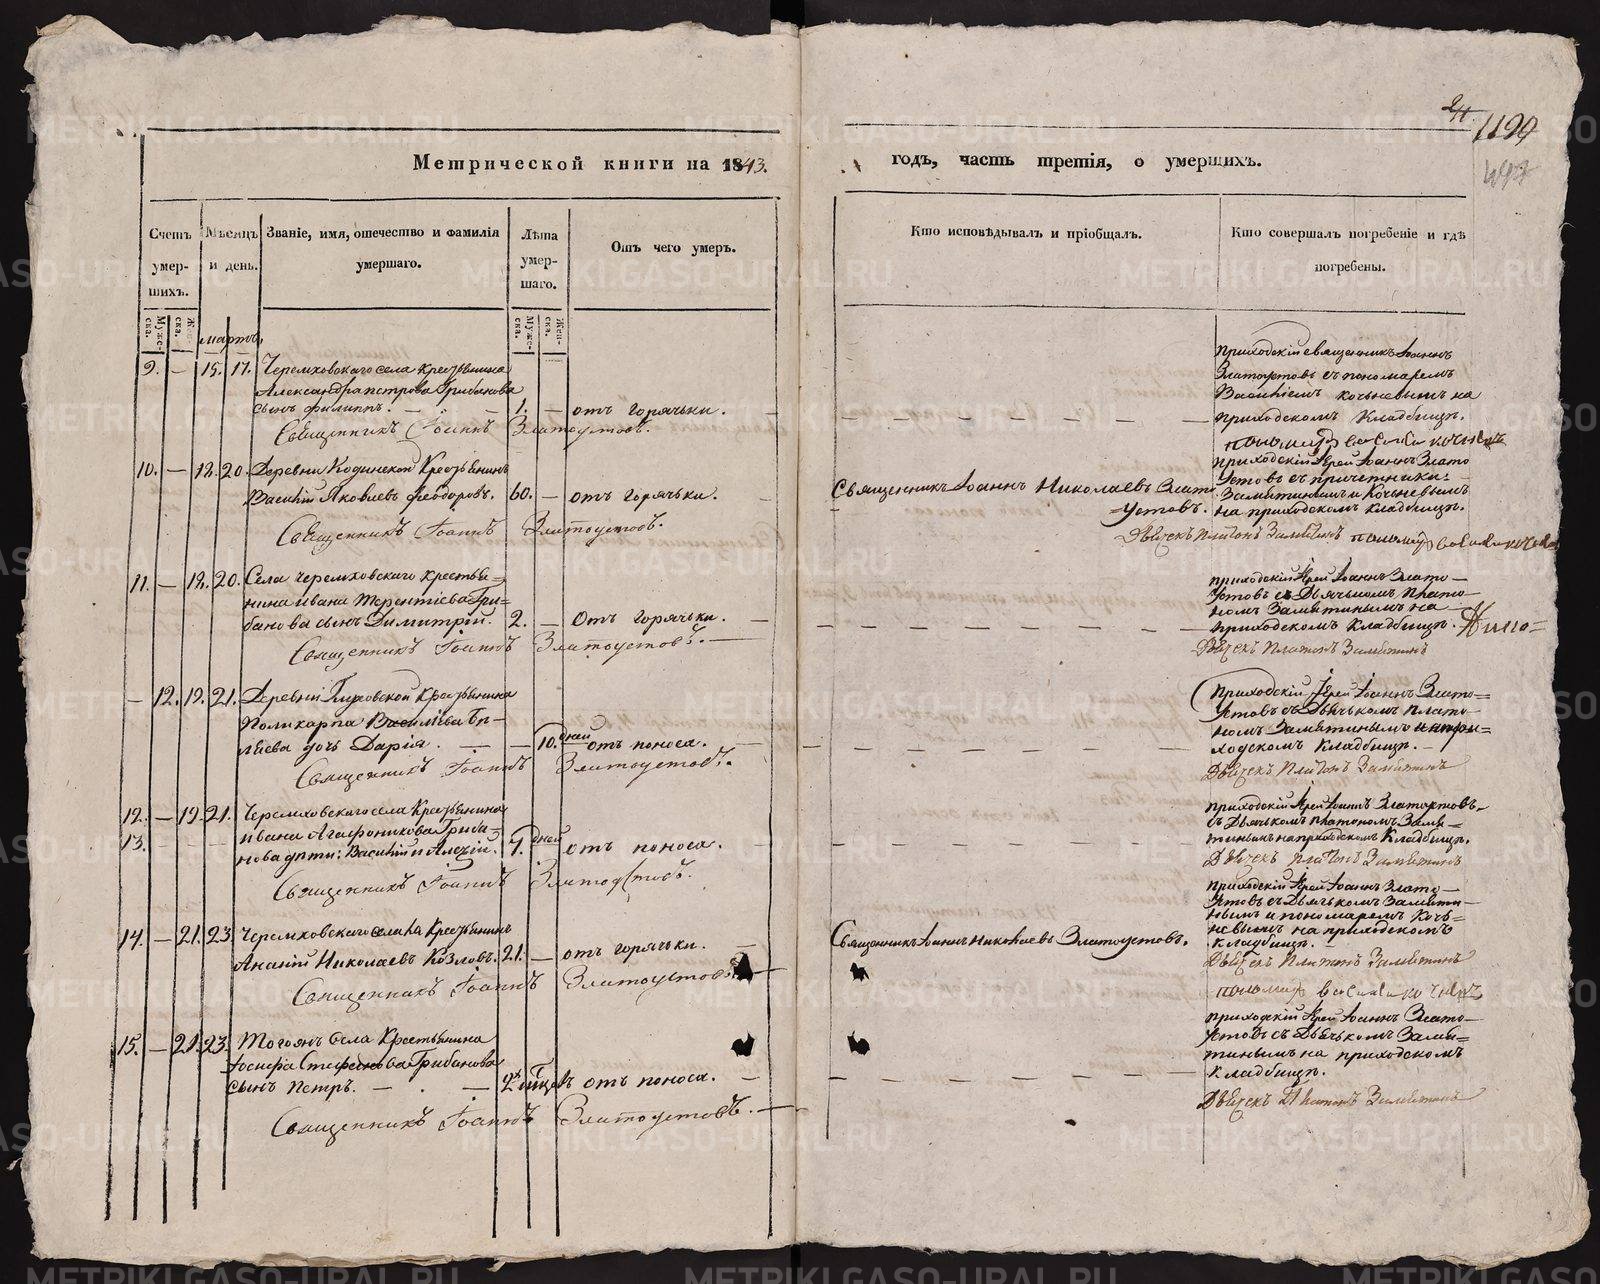 24
1199
497
Метрической книги на 1843.
годъ, часть третія, о умершихъ.
Счетъ умер-
шихъ.
Мѣсяцъ
и день.
Званіе, имя, отечество и фамилія
умершаго.
Лѣта
умер-
шаго.
Отъ чего умеръ.
Кто исповѣдывалъ и пріобщалъ.
Кто совершалъ погребеніе и гдѣ
погребены.
Муже-
ска.
Жен-
ска.
Муже-
ска.
Жен-
ска.
мартъ
9. — 15. 17. Черемховскаго села Крестьянина
Александра петрова Грибанова
сынъ филиппъ. — — 1. — отъ горячьки.
Священникъ Іоаннъ Златоустовъ.
приходскій священникъ Іоаннъ
Златоустовъ съ пономаремъ
Василіемъ кочневымъ на
приходскомъ Кладбищѣ.
10. — 18. 20. Деревни Кодинской Крестьянинъ
Василій Яковлевъ Феодоровъ. 60. — отъ горячьки.
Священникъ Іоаннъ Златоустовъ.
Священникъ Іоаннъ Николаевъ Злато
=устовъ.
приходскій Іерей Іоаннъ Злато
устовъ съ причетники=
Замятинымъ и Кочневымъ
на приходскомъ кладбищѣ.
Дьячекъ Платонъ Замятинъ
11. — 18. 20. Села черемховскаго крестья=
нина ивана Терентіева Гри=
банова сынъ Димитрій. 2. — Отъ горячьки.
Священникъ Іоаннъ Златоустовъ.
приходскій Іерей Іоаннъ Злато—
устовъ съ Дьячькомъ Плато—
номъ Замятинымъ на —
приходскомъ кладбищѣ.
Дьячекъ Платонъ Замятинъ
— 12. 19. 21. Деревни Глуховской Крестьянина
Поликарпа Василіева Бѣ-
ляева дочь Дарія. — — 10. дней отъ поноса.
Священникъ Іоаннъ Златоустовъ.
приходскій Іерей Іоаннъ Злато=
устовъ съ Дьячькомъ Плато-
номъ Замятинымъ на при=
ходскомъ Кладбищѣ.
Дьячекъ Платонъ Замятинъ
12. — 19. 21. Черемховскаго села Крестьянина
13. ивана Агафоникова Гриба=
нова дѣти: Василій и Алексій. 7. дней отъ поноса.
Священникъ Іоаннъ Златоустовъ.
приходскій Іерей Іоаннъ Златоустовъ
съ Дьячькомъ Платономъ Замя-
тинымъ на приходскомъ Кладбищѣ.
Дьячекъ Платонъ Замятинъ
14. — 21. 23. Черемховскаго села Крестьянинъ
Ананій Николаевъ Козловъ. 21. — отъ горячьки.
Священникъ Іоаннъ Златоустовъ.
Священникъ Іоаннъ Николаевъ Златоустовъ.
приходскій Іерей Іоаннъ Злато—
устовъ съ Дьячькомъ Замяти—
нымъ и пономаремъ Коч=
невымъ на приходскомъ
кладбищѣ.
Дьячекъ Платонъ Замятинъ
15. — 21. 23. Тогожъ села Крестьянина
Іосифа Стефанова Грибанова
сынъ петръ. — — 2 отъ поноса.
Священникъ Іоаннъ Златоустовъ.
приходскій Іерей Іоаннъ Злато—
устовъ съ Дьячькомъ Замя=
тинымъ на приходскомъ
кладбищѣ.
Дьячекъ Платонъ Замятинъ
METRIKI.GASO-URAL.RU